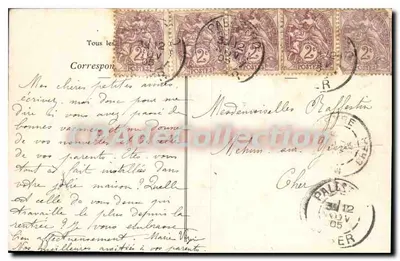 Tous les
Correspon
2c 2c 2c 2c 2c
POSTES
Mes chères petites amies,
écrivez moi donc pour me
dire si vous avez passé de
bonnes vacances
de vos nouvelles
de vos parents. Êtes-vous
tout à fait installés dans
votre jolie maison? Quelle
est celle de vous deux qui
travaille le plus depuis la
rentrée? Je vous embrasse
bien affectueusement. Marie
Nos meilleures amitiés à vos parents
Mesdemoiselles Raffestin
Mehun-sur-Yèvre
Cher
PALL
12
NOV
05
CHER
PadeCollection